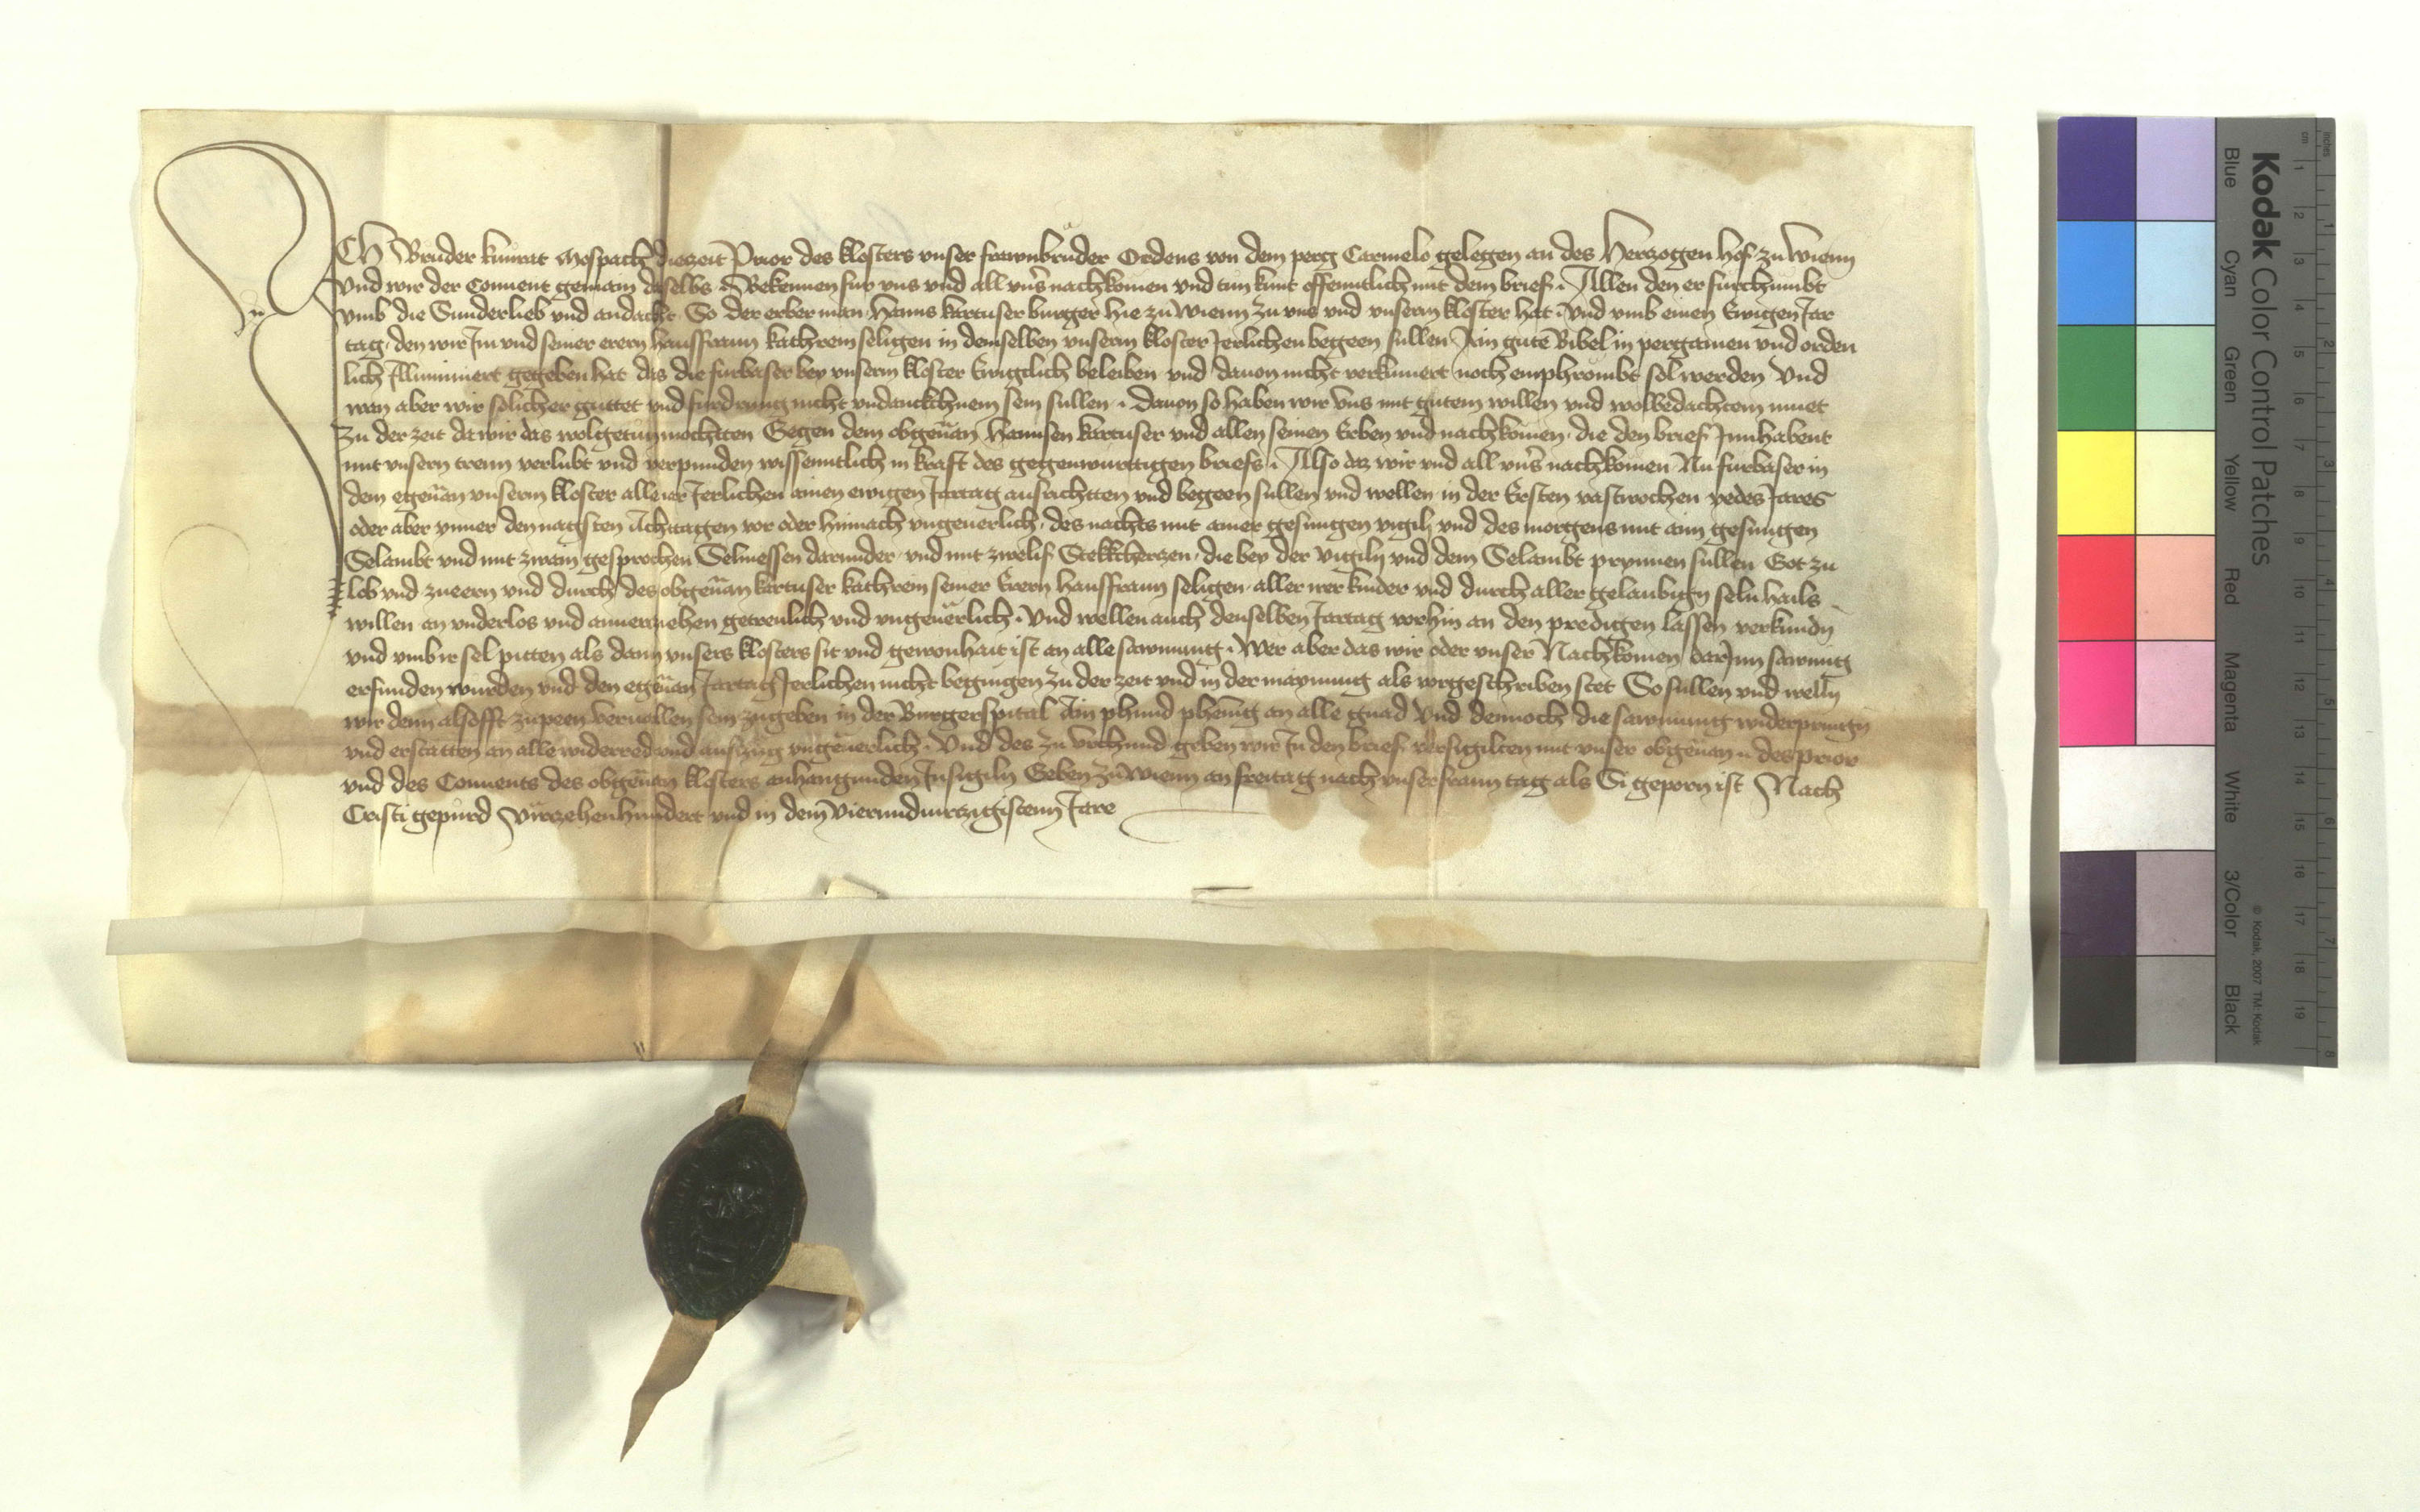 ICH Bruder kunrat Mospach diezeit Prior des klosters unser frawnbruder Ordens von dem perg Carmelo gelegen an des Herzogen hof zu Wienn
Und wir der Convent gemain daselbs Bekennen fur uns und all unser nachkomen und tun kunt offenntlich mit dem brief Allen den er furchumbt
umb die Sunderlieb und andacht So der erber man Hanns kartuser burger hie zu Wienn zu uns und unserm kloster hat und umb einen Ewigen Jar
tag den wir Im und seiner erern hausfraun kathrein seligen in demselben unserm kloster Jerlichen begeen sullen Ain gute Bibel in pergamen und orden
lich Illuminiert gegeben hat das die furbaser bey unserm kloster Ewigclich beleiben und davon nicht verkumert noch emphrombt sol werden Und
wan aber wir solicher guttet und furdrung nicht undanckchnem sein sullen davon so haben wir uns mit gutem willen und wolbedachtem muet
zu der zeit da wir das wol getun mochten Gegen dem obgenan Hannsen kartuser und allen seinen Erben und nachkomen die den brief Innhabent
mit unsern trewn verlubt und verpunden wissenntlich in kraft des gegenwurttigen briefs Also daz wir und all unser nachkomen Nu furbaser in
dem egenan unserm kloster alle iar Jerlichen ainen ewigen Jartag ausrichtten und begeen sullen und wellen in der Ersten vastwochen yedes Jares
oder aber ynner den nagsten Achttagen vor oder hinnach ungeverlich des nachts mit ainer gesungen vigili und des morgens mit aim gesungen
Selambt und mit zwain gesprochen Selmessen darunder und mit zwelif Stekkcherzen die bey der vigily und dem Selambt prynnen sullen Got zu
lob und zu eern und durch des obgenan kartuser kathrein seiner Erern hausfraun seligen aller irer kinder und durch aller gelaubign seln hails
willen an underlos und an verziehen getreulich und ungeverlich Und wellen auch denselben Jartag vorhin an den predigen lassen verkundn
und umb ir sel pitten als dann unsers klosters sit und gewonhait ist an alle sawmung Wer aber das wir oder unser Nachkomen darInn sawmig
erfunden wurden und den egenan Jartag Jerlichen nicht begingen zu der zeit und in der maynung als vorgeschriben stet So sullen und welln
wir denn als offt zu peen vervallen sein zugeben in der Burgerspital Ain phund phening an alle gnad Und dennoch die sawmung widerpringn
und erstatten an alle widerred und auszug ungeverlich Und des zu Urchund geben wir In den brief versigilten mit unser obgenan des prior
und des Convents des obgenan klosters anhangunden Insigiln Geben zu Wienn an freitag nach unser fraun tag als Si geporn ist Nach
Cristi gepurd Virzehenhundert und in dem Vierundvirtzigistenn Jare
Kodak Color Control Patches
Blue Cyan Green Yellow Red Magenta White 3/Color Black
© Kodak, 2007 TM: Kodak
cm 1 2 3 4 5 6 7 8 9 10 11 12 13 14 15 16 17 18 19
inches 1 2 3 4 5 6 7 8